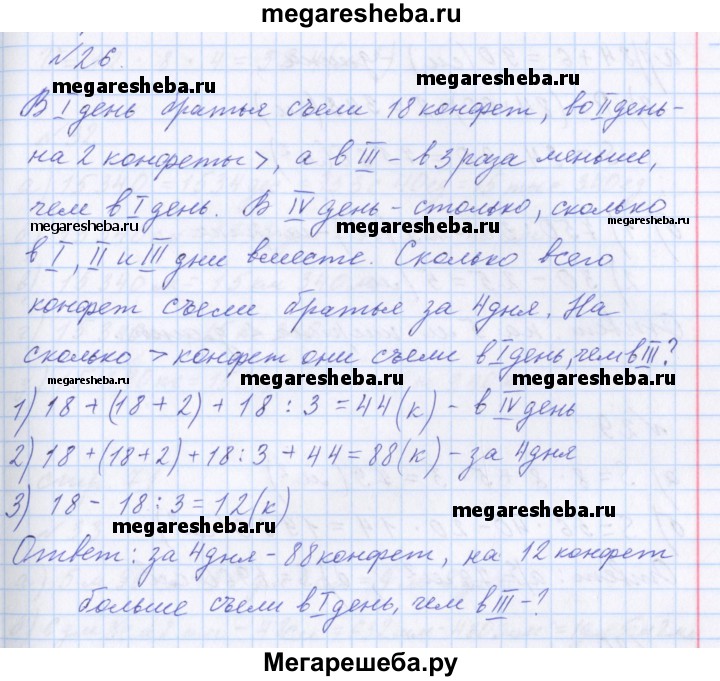 megaresheba.ru
№26.
megaresheba.ru megaresheba.ru
В I день братья съели 18 конфет, во II день -
на 2 конфеты >, а в III - в 3 раза меньше,
чем в I день. В IV день - столько, сколько
megaresheba.ru megaresheba.ru megaresheba.ru
в I, II и III дни вместе. Сколько всего
конфет съели братья за 4 дня. На
сколько > конфет они съели в I день, чем в III?
megaresheba.ru megaresheba.ru megaresheba.ru
1) 18 + (18 + 2) + 18 : 3 = 44 (к) - в IV день
2) 18 + (18 + 2) + 18 : 3 + 44 = 88 (к) - за 4 дня
3) 18 - 18 : 3 = 12 (к)
megaresheba.ru megaresheba.ru
Ответ: за 4 дня - 88 конфет, на 12 конфет
больше съели в I день, чем в III - ?
Мегарешеба.ру